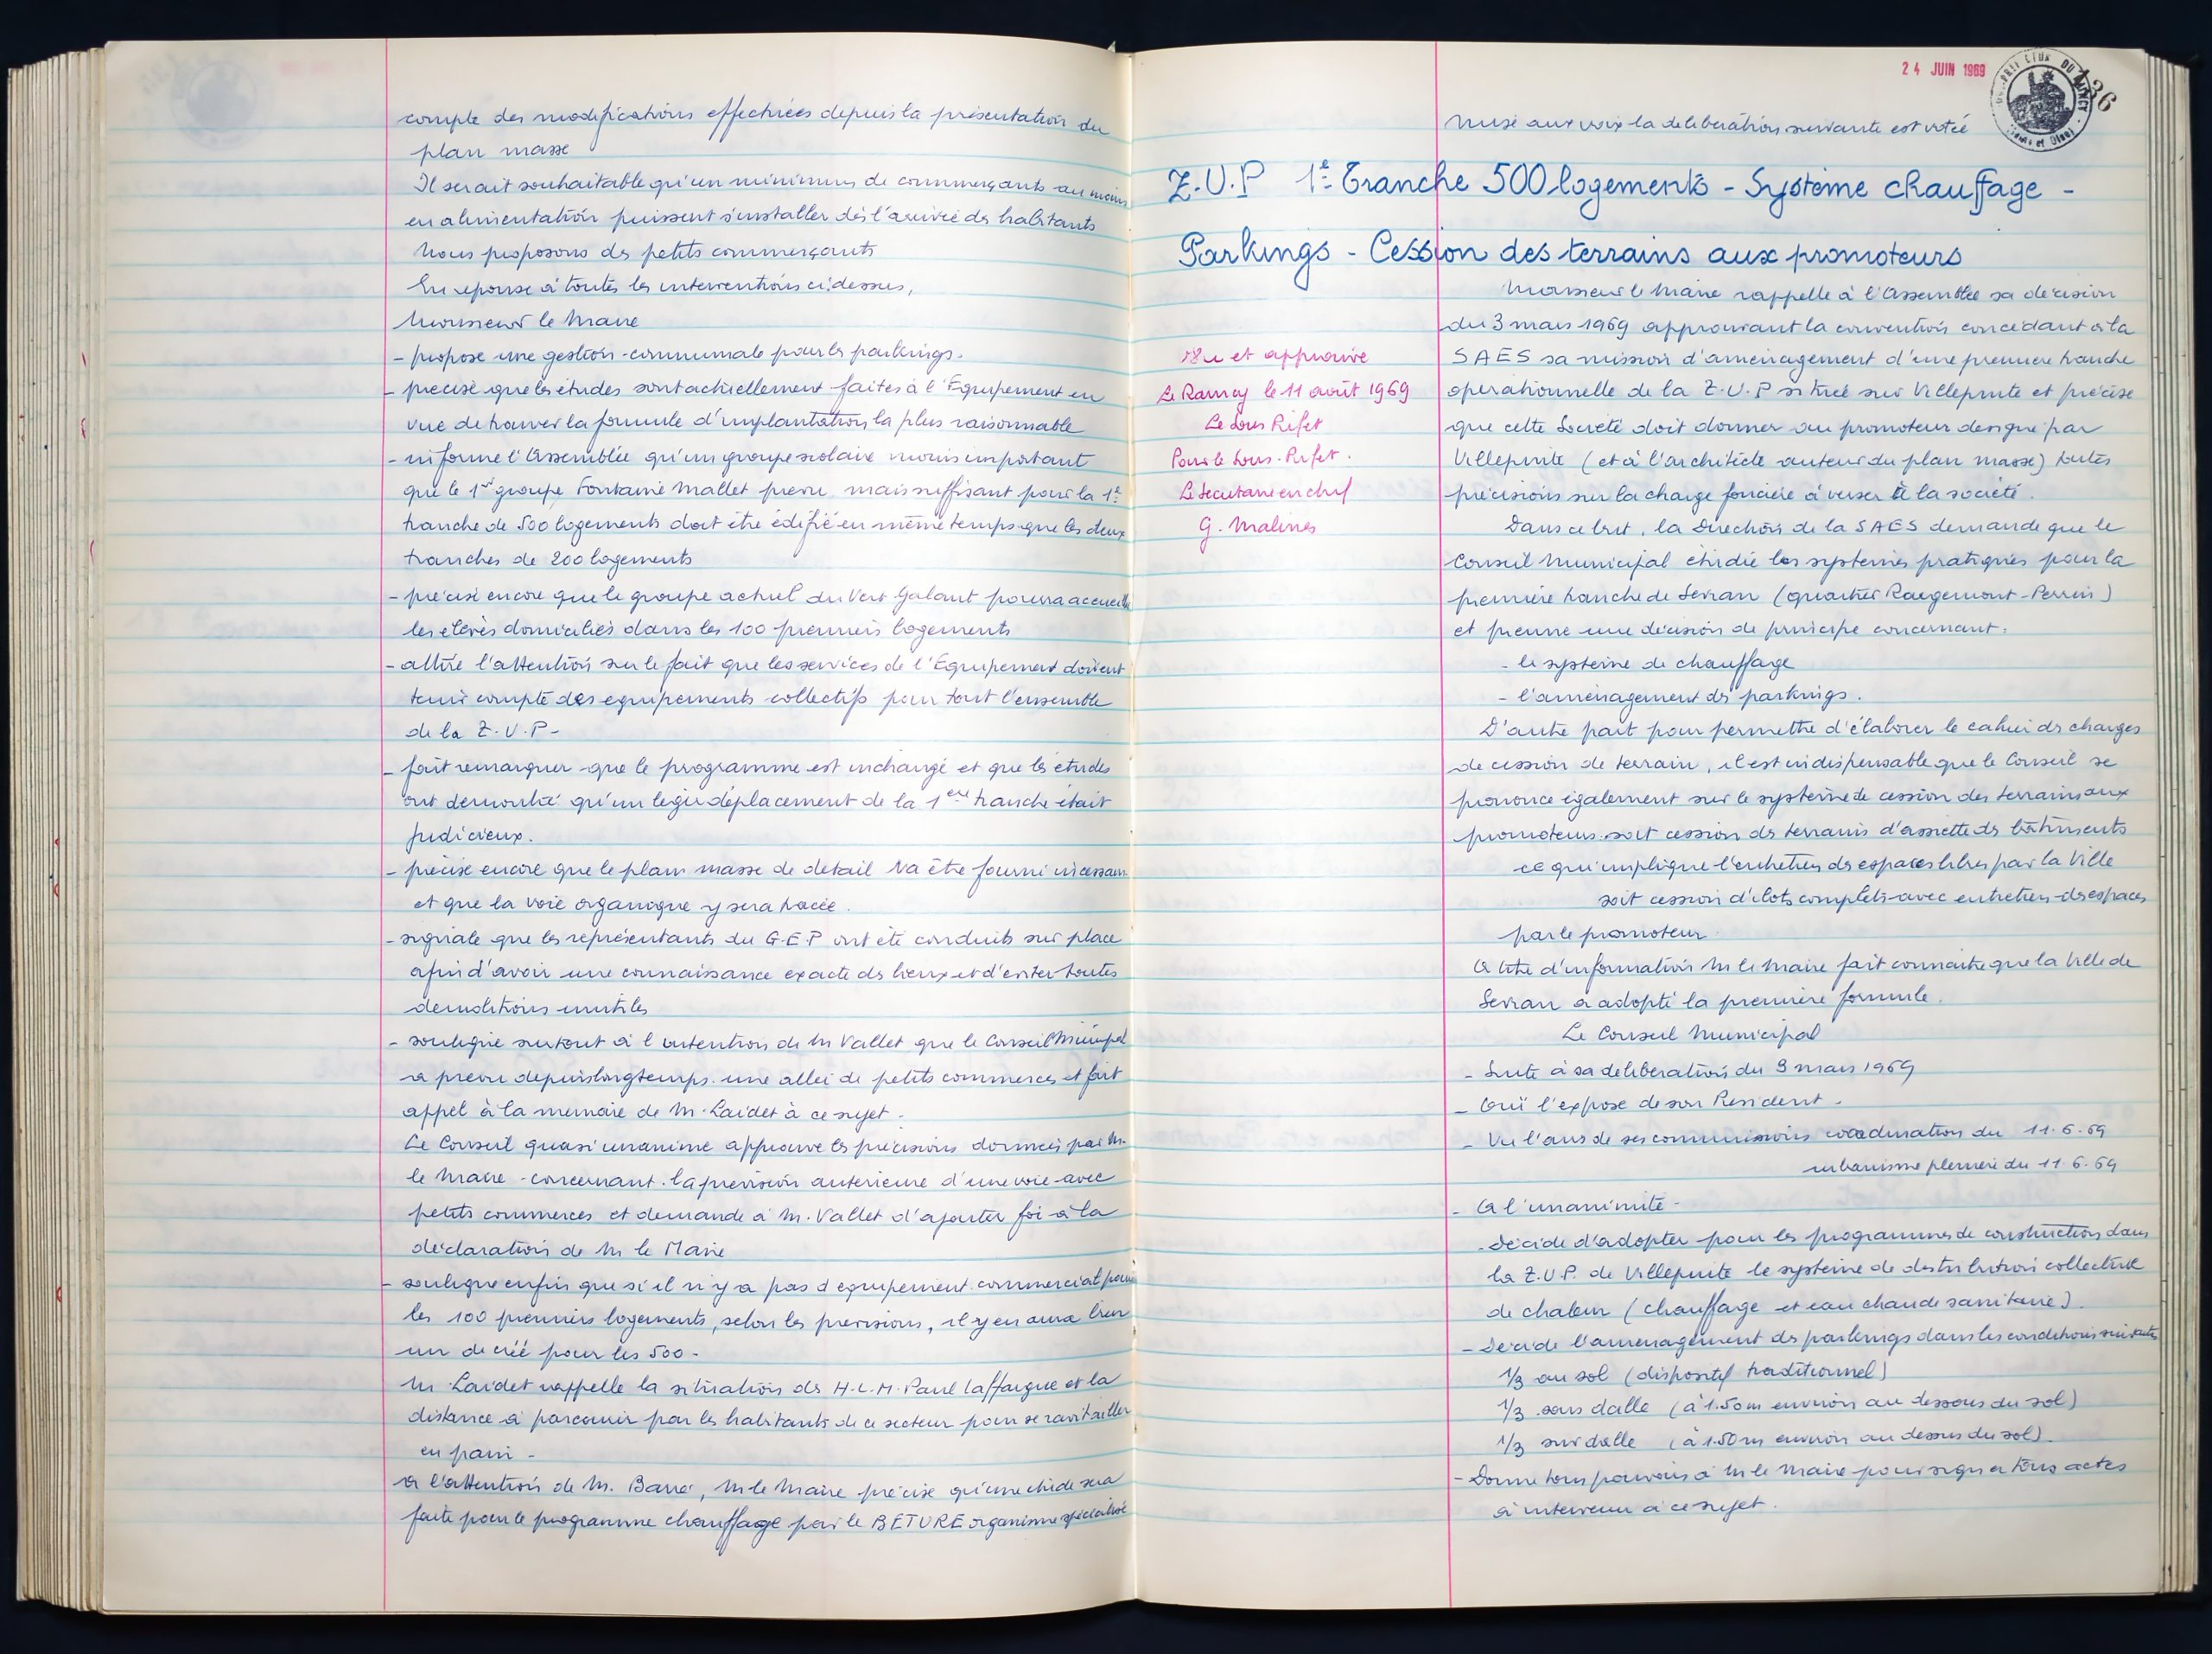 compte des modifications effectuées depuis la présentation du
plan masse
Il serait souhaitable qu'un minimum de commerçants au moins
en alimentation puissent s'installer dès l'arrivée des habitants
Nous proposons des petits commerçants
En reponse à toutes les interventions ci.dessus,
Monsieur le Maire
- propose une gestion communale pour les parkings.
- precise que les études sont actuellement faites à l'Equipement en
vue de trouver la formule d'implantation la plus raisonnable
- informe l'Assemblée qu'un groupe scolaire moins important
que le 1er groupe Fontaine Mallet prevu mais suffisant pour la 1e
tranche de 500 logements doit être édifié en même temps que les deux
tranches de 200 logements
- précise encore que le groupe actuel du Vert Galant pourra accueillir
les elèves domiciliés dans les 100 premiers logements
- attire l'attention sur le fait que les services de l'Equipement doivent
tenir compte des equipements collectifs pour tout l'ensemble
de la Z.U.P-
- fait remarquer que le programme est inchangé et que les études
ont demontré qu'un leger déplacement de la 1ere tranche était
judicieux.
- précise encore que le plan masse de detail va être fourni incessam
et que la voie organique y sera tracée.
- signale que les représentants du G.E.P ont été conduits sur place
afin d'avoir une connaissance exacte des lieux et d'eviter toutes
demolitions inutiles
- souligne surtout à l'intention de M Vallet que le Conseil Municipal
a prevu depuis longtemps une allée de petits commerces et fait
appel à la memoire de M. Laidet à ce sujet.
Le Conseil quasi unanime approuve les précisions données par M.
le Maire concernant la prévision anterieure d'une voie avec
petits commerces et demande à M. Vallet d'ajouter foi à la
déclaration de M le Maire
- souligne enfin que si il n'y a pas d'equipement commercial pour
les 100 premiers logements, selon les previsions, il y en aura bien
un de créé pour les 500-
M Laidet rappelle la situation des H.L.M. Paul Laffargue et la
distance à parcourir par les habitants de ce secteur pour se ravitailler
en pain -
A l'attention de M. Barré, M le Maire précise qu'une étude sera
faite pour le programme chauffage par le BETURE organisme spécialisé
24 JUIN 1969
136
Mise aux voix la deliberation suivante est votée
Z.U.P 1e Tranche 500 logements - Système chauffage -
Parkings - Cession des terrains aux promoteurs
Monsieur le Maire rappelle à l'Assemblée sa décision
du 3 mars 1969 approuvant la convention concédant à la
SAES sa mission d'aménagement d'une premiere tranche
operationnelle de la Z.U.P située sur Villepinte et précise
que cette Société doit donner au promoteur designé par
Villepinte (et à l'architecte auteur du plan masse) toutes
précisions sur la charge foncière à verser à la société.
Dans ce but, la Direction de la SAES demande que le
Conseil Municipal étudie les systemes pratiqués pour la
première tranche de Sevran (quartier Rougemont-Perrin)
et prenne une décision de principe concernant:
- le système de chauffage
- l'aménagement des parkings.
D'autre part pour permettre d'élaborer le cahier des charges
de cession de terrain, il est indispensable que le Conseil se
prononce également sur le système de cession des terrains aux
promoteurs: soit cession des terrains d'assiette des bâtiments
ce qui implique l'entretien des espaces libres par la Ville
soit cession d'ilots complets avec entretien des espaces
par le promoteur.
A titre d'information M le Maire fait connaitre que la Ville de
Sevran a adopté la première formule.
Le Conseil Municipal
- Suite à sa deliberation du 3 mars 1969
- Ouï l'expose de son President.
- Vu l'avis de ses commissions coordination du 11.6.69
urbanisme pleniere du 11.6.69
- A l'unanimite -
- Décide d'adopter pour les programmes de construction dans
la Z.U.P. de Villepinte le système de distribution collective
de chaleur (chauffage et eau chaude sanitaire).
- Decide l'aménagement des parkings dans les conditions suivantes
1/3 au sol (dispositif traditionnel)
1/3 sous dalle (à 1.50m environ au dessous du sol)
1/3 sur dalle (à 1.50m environ au dessus du sol).
- Donne tous pouvoirs à M le Maire pour signer tous actes
à intervenir à ce sujet.
Vu et approuvé
Le Raincy le 11 août 1969
Le Sous Préfet
Pour le Sous-Préfet.
Le Secretaire en chef
G. Malines